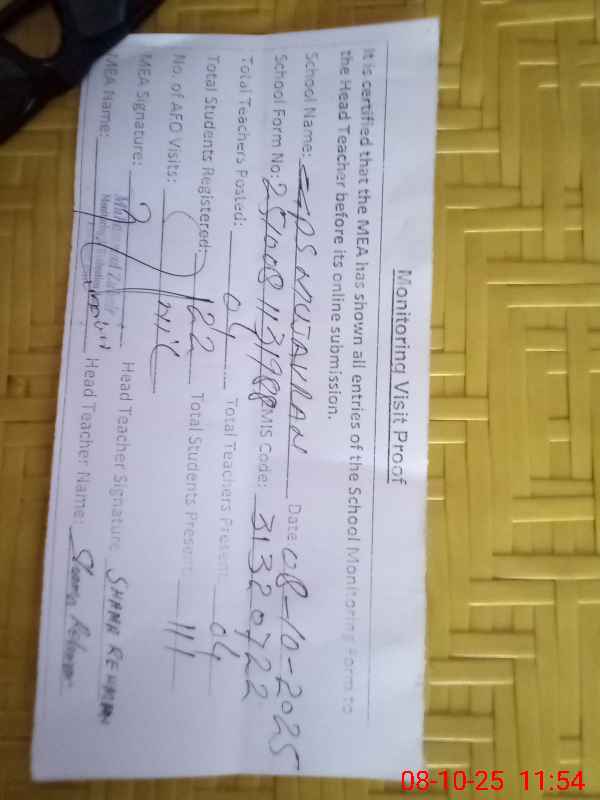 Monitoring Visit Proof
It is certified that the MEA has shown all entries of the School Monitoring Form to
the Head Teacher before its online submission.
School Name: GPS MUTAKRAN Date: 08-10-2025
School Form No: 251008113198 MIS Code: 31320722
Total Teachers Posted: 04 Total Teachers Present: 04
Total Students Registered: 122 Total Students Present: 111
No. of AFO Visits: nil
MEA Signature: Head Teacher Signature: SHAMA REHMAN
MEA Name: Head Teacher Name: Shama Rehman
08-10-25 11:54